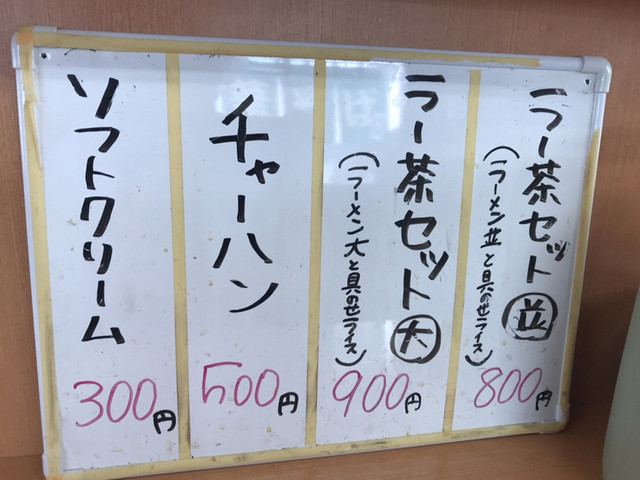 ラー茶セット 並
(ラーメン並と具のせライス)
800円
ラー茶セット 大
(ラーメン大と具のせライス)
900円
チャーハン
500円
ソフトクリーム
300円